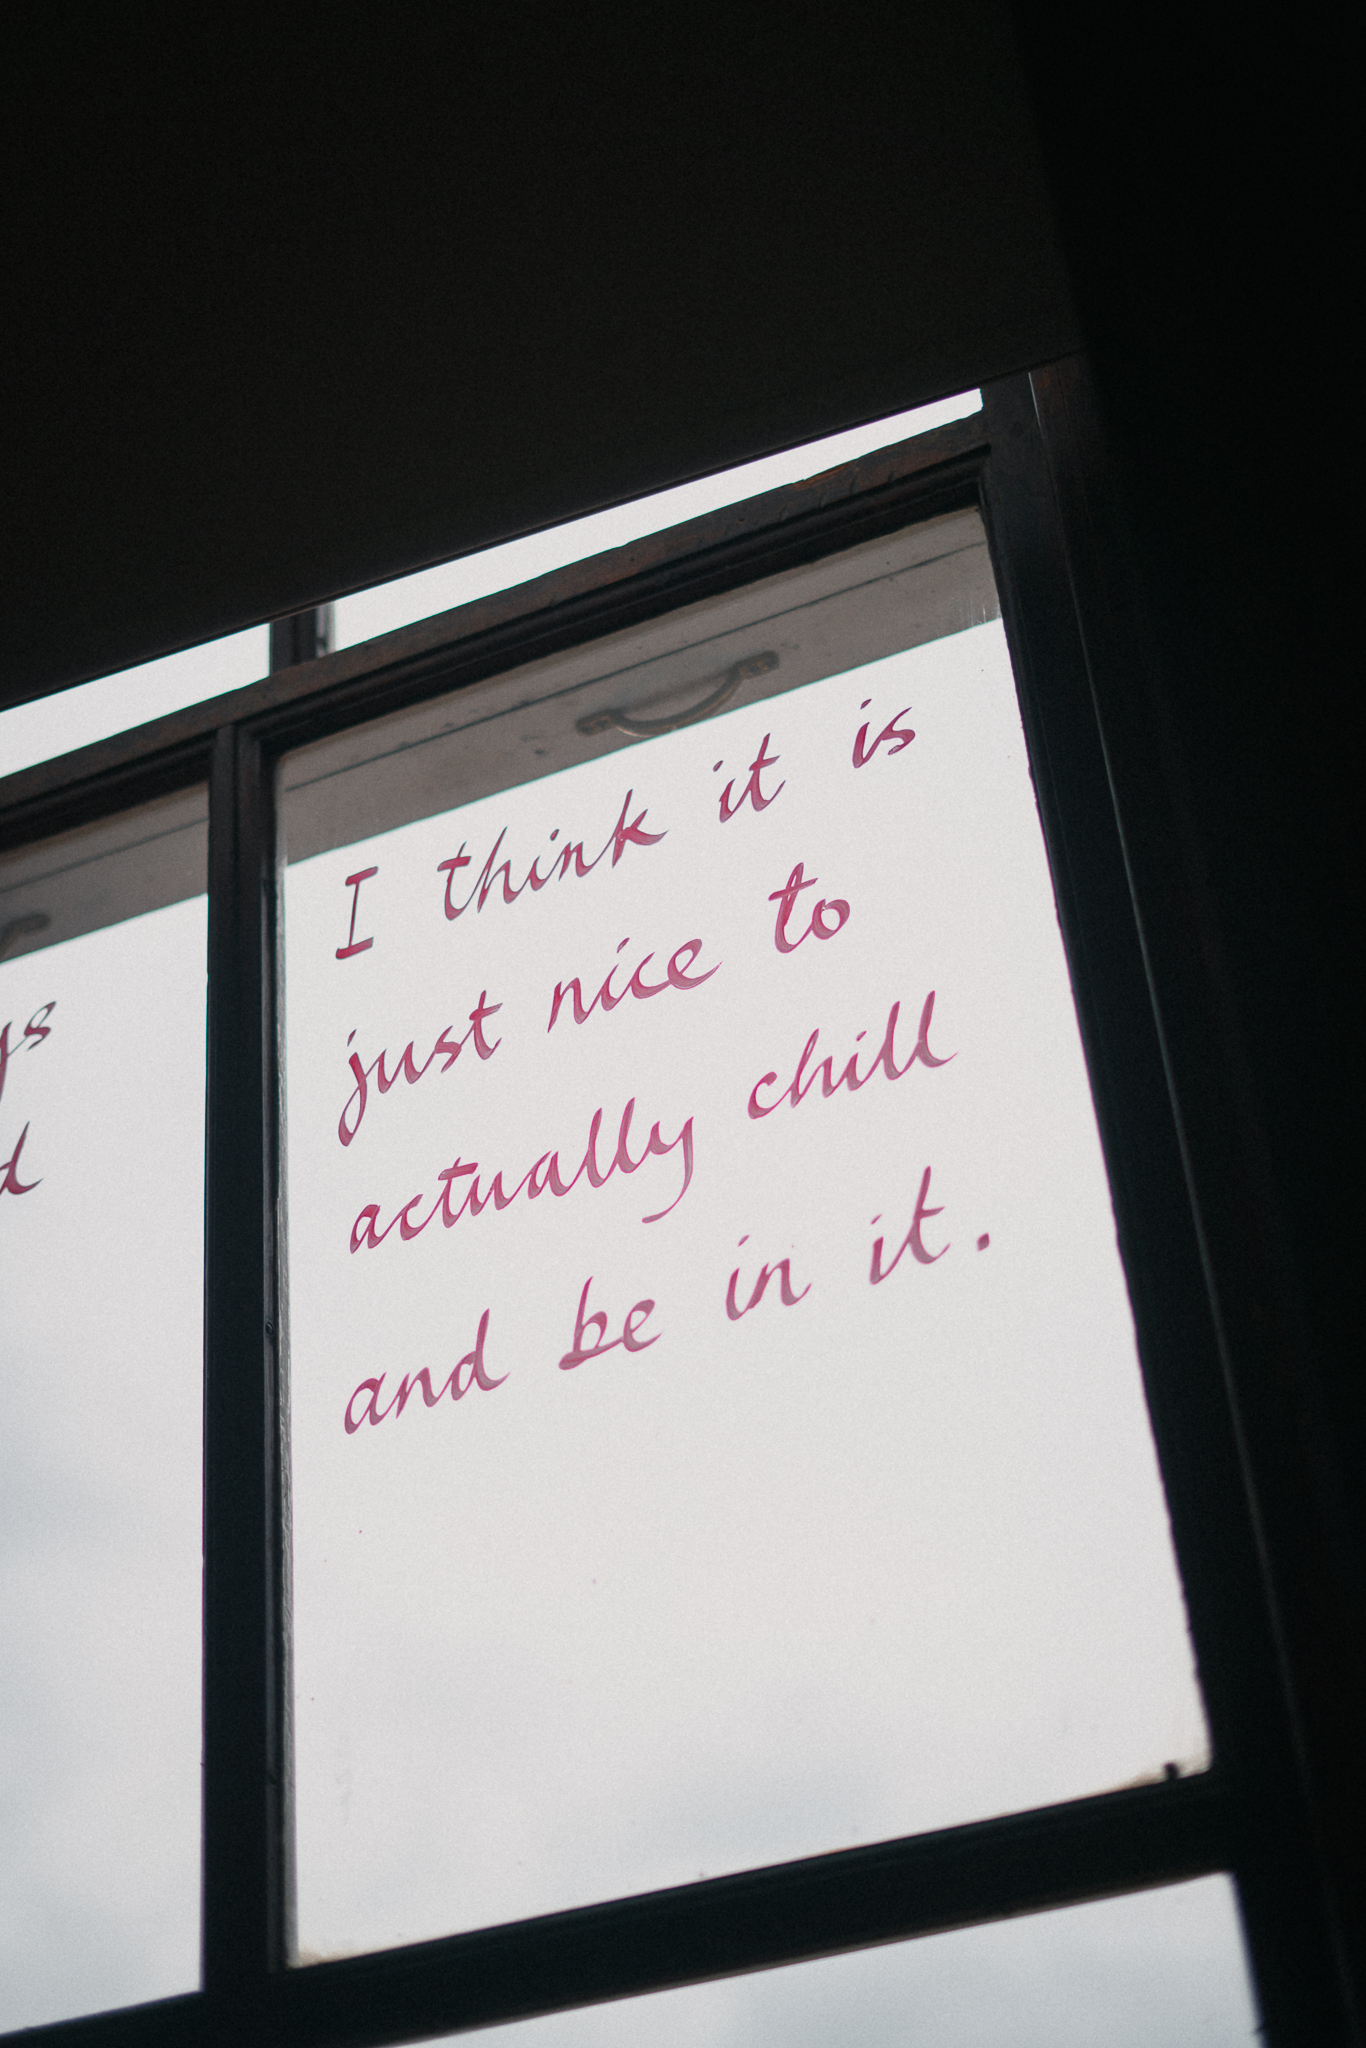 I think it is
just nice to
actually chill
and be in it.